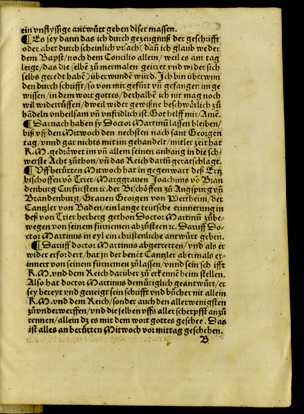 ein unstyssige antwurt geben diser massen.
¶ Es sey dann das ich durch gezeugnuß der geschrifft
oder aber durch scheinlich ursach/ dann ich glaub weder
dem Bapst/ noch dem Concilio allein/ weil es am tag
leigt/ das die selbe zů mermalen geirret und wider sich
selbs geredt habe überwunde wurd. Ich bin überwun
den durch schrifft/ so von mir gefürt und gefangen im ge
wissen/ in dem wort gottes/ deshalbe ich nit mag noch
wil widerruffen/ dweil wider gewißne beschwärlich zů
hädeln unheilsam und unfridlich ist. Got helff mir Ame.
¶ Darnach haben sy Doctor Martinū lassen bleiben/
biß uff den Mitwoch den nechsten nach sant Georgen
tag/ unnd gar nichts mit im gehandelt/ mitler zeit hat
K.M. gedräwet im und allen seinen anhang in die sch
werste Acht zůthon/ und das Reich darzů geratschlagt.
¶ Uff berürten Mitwoch hat in gegenwart deß Ertz
bischoffen vö Trier/ Marggrauen Joachims vö Bran
denburg Curfürsten rc. der Bischöffen zů Augspurg uñ
Brandenburg/ Grauen Georgen von Wertheim/ der
Cantzler von Baden/ ein lange treüliche erinnerung in
deß von Trier herberg gethon Doctor Martinū zůbe-
wegen von seinem fürnemen abzüsteen rc. Daruff Do-
ctor Martinus in eyl ein christenliche antwürt geben.
¶ Daruff doctor Martinus abgetretten/ und als er
wider erfordert/ hat jn der benēt Cantzler abermals er-
innert von seinem fürnemen zůlassen/ unnd sein sch ifft
K.M. und dem Reich darüber zů erkeñē heim stellen.
Also hat doctor Martinus demütiglich geantwurt/ er
sey bereyt und geneigt sein schrifft und bücher nit allein
K.M. und dem Reich/ sonder auch den allerwenigsten
zů underwerffen/ und die selben uffs aller scherpffst an zů
rennen/ allein dz es mit dem wort gottes geschee. Das
ist alles an berürten Mitwoch vor mittag geschehen.
B